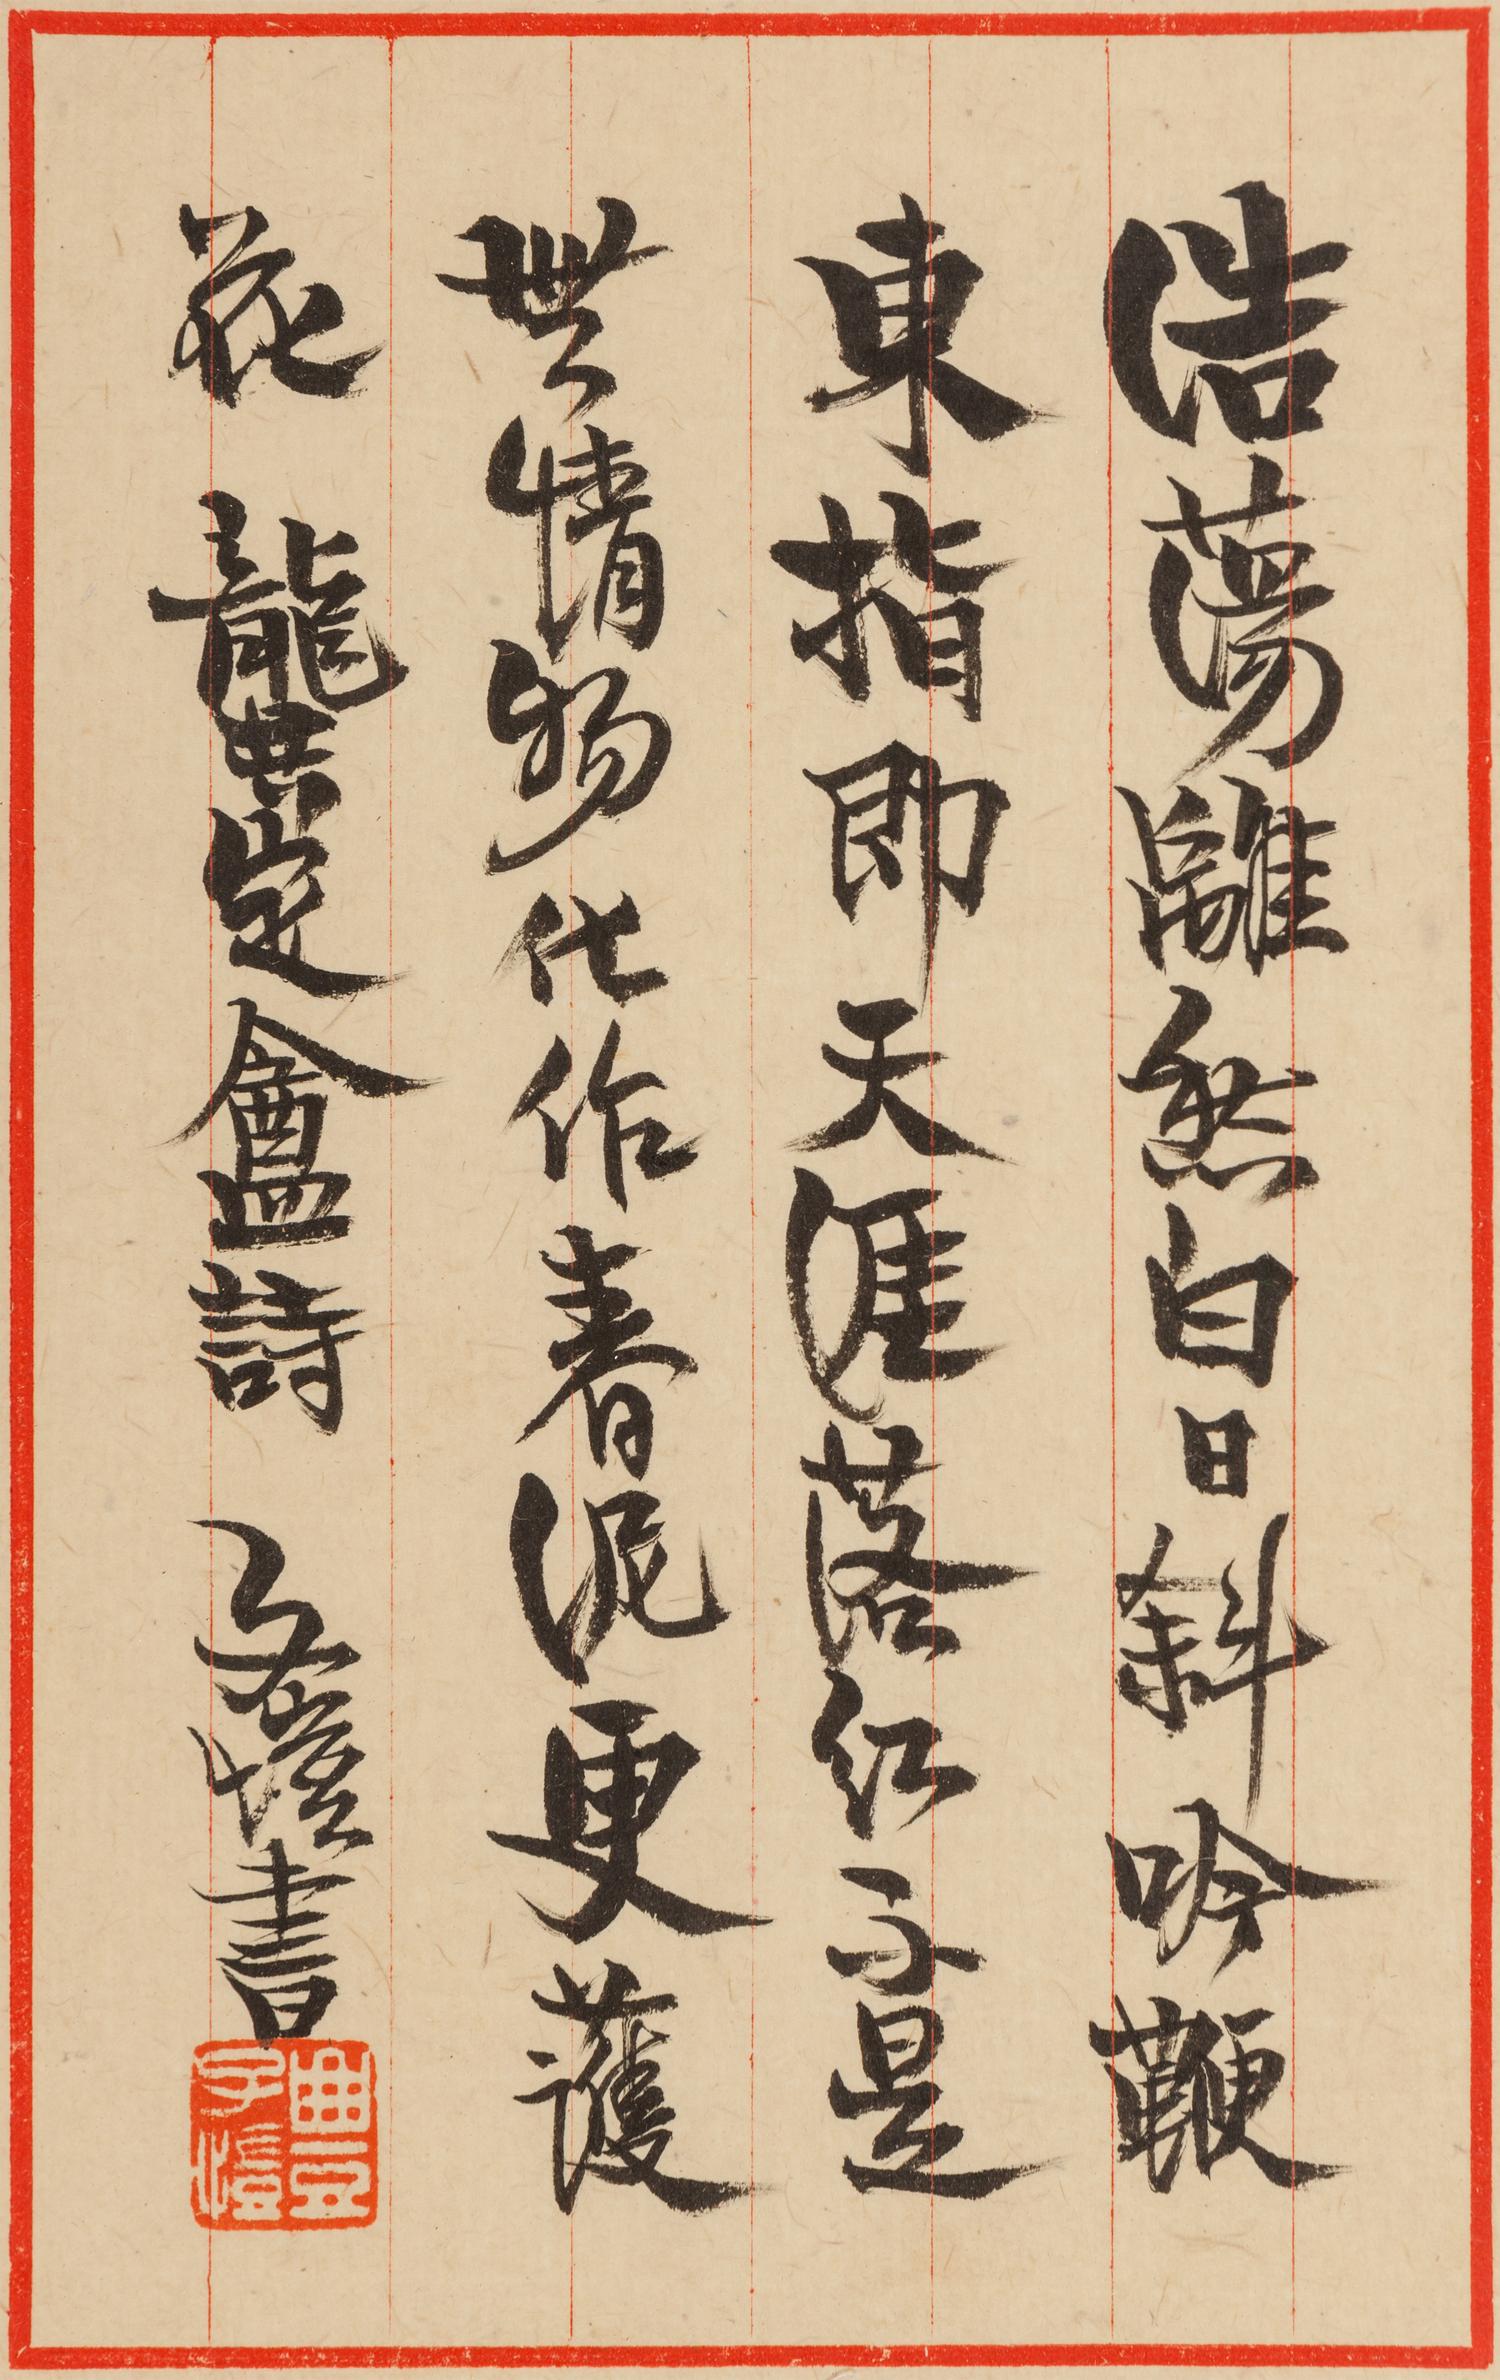 浩蕩離愁白日斜吟鞭
東指即天涯落紅不是
無情物化作春泥更護
花 龔定盦詩 子愷書
豐子愷